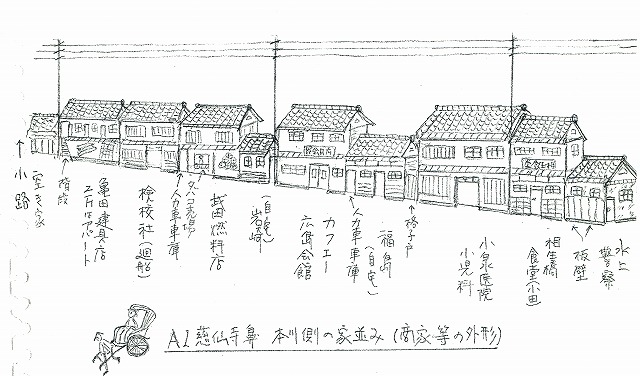 ↑小路
空き家
↑階段
亀田建具店
二階はアパート
検校社(廻船)
↑人力車車庫
タバコ売台戸
武田燃料店
(自宅)
岩崎
カフェー
広島会館
↑人力車車庫
福島
(自宅)
↑格子戸
小泉医院
小児科
相生橋
食堂小田
↑板壁
水上
警察
A1 慈仙寺鼻 本川側の家並み(商家等の外形)